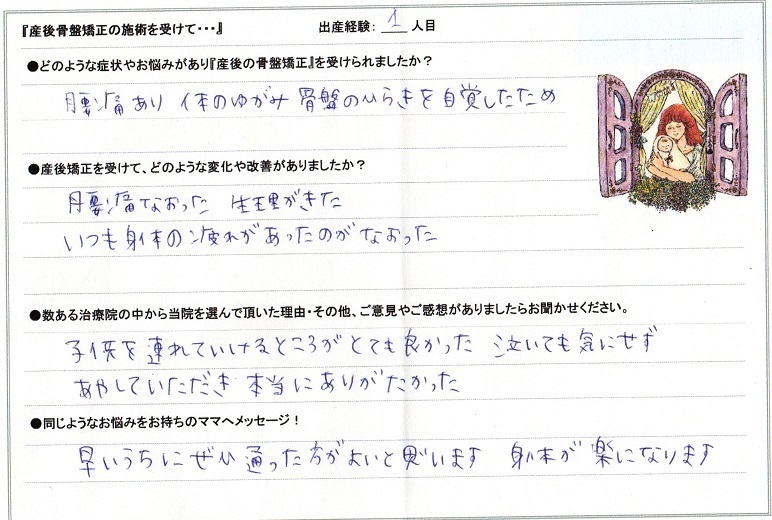 『産後骨盤矯正の施術を受けて・・・』 出産経験： 1 人目
●どのような症状やお悩みがあり『産後の骨盤矯正』を受けられましたか？
腰痛あり 体のゆがみ 骨盤のひらきを自覚したため
●産後矯正を受けて、どのような変化や改善がありましたか？
腰痛なおった 生理がきた
いつも身体の疲れがあったのがなおった
●数ある治療院の中から当院を選んで頂いた理由・その他、ご意見やご感想がありましたらお聞かせください。
子供を連れていけるところがとても良かった 泣いても気にせず
あやしていただき 本当にありがたかった
●同じようなお悩みをお持ちのママへメッセージ！
早いうちにぜひ通った方がよいと思います 身体が楽になります